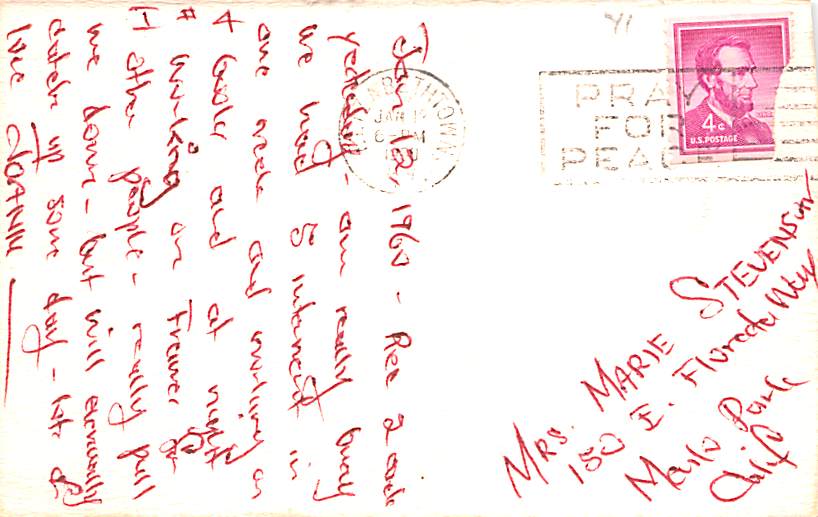 Jan 12, 1960 - Rec 2 cards
yesterday - am really busy
we had 5 in
one week and working on
4 books and at night
# working on Frames for
other people - really pull
me down - but will eventually
catch up some day - lots of
love JOANN
JAN
PM
PRAY
FOR
PEACE
4c
U.S. POSTAGE
MRS. MARIE STEVENSON
150 E.
Menlo Park
Calif